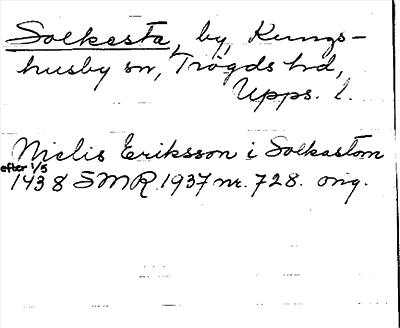 Solkesta, by, Kungs-
husby sn, Trögds hd,
Upps. l.
Nielis Eriksson i Solkastom
efter 1/5
1438 SMR 1937 nr. 728. orig.